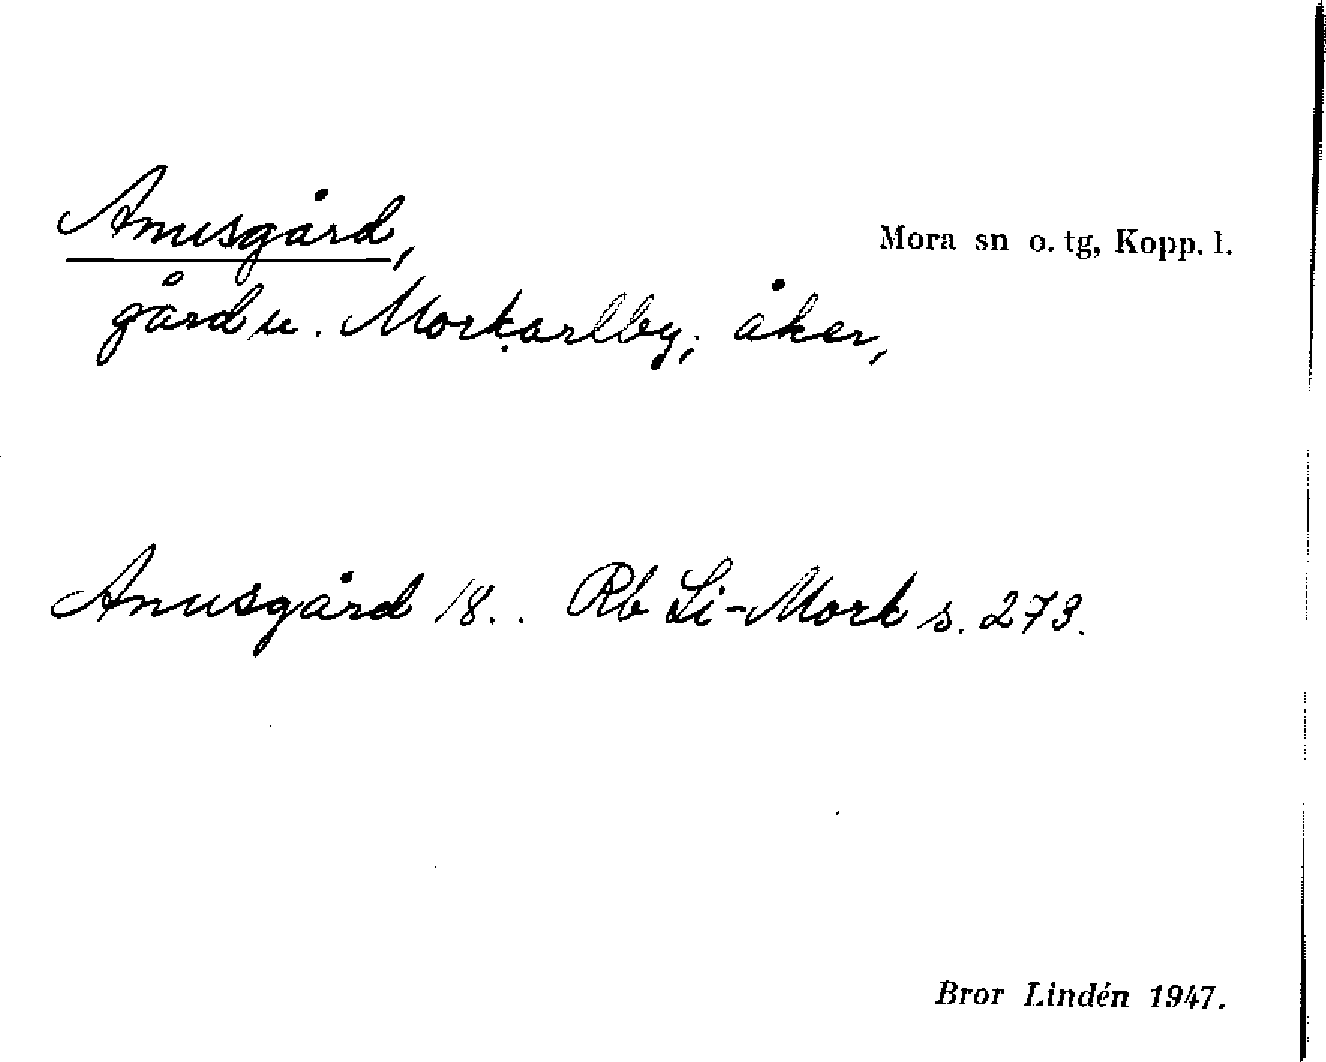 Anusgård,
Mora sn o. tg, Kopp. l.
gård u. Morkarlby; åker,
Anusgård 18.. Rb Li-Mork s. 273.
Bror Lindén 1947.